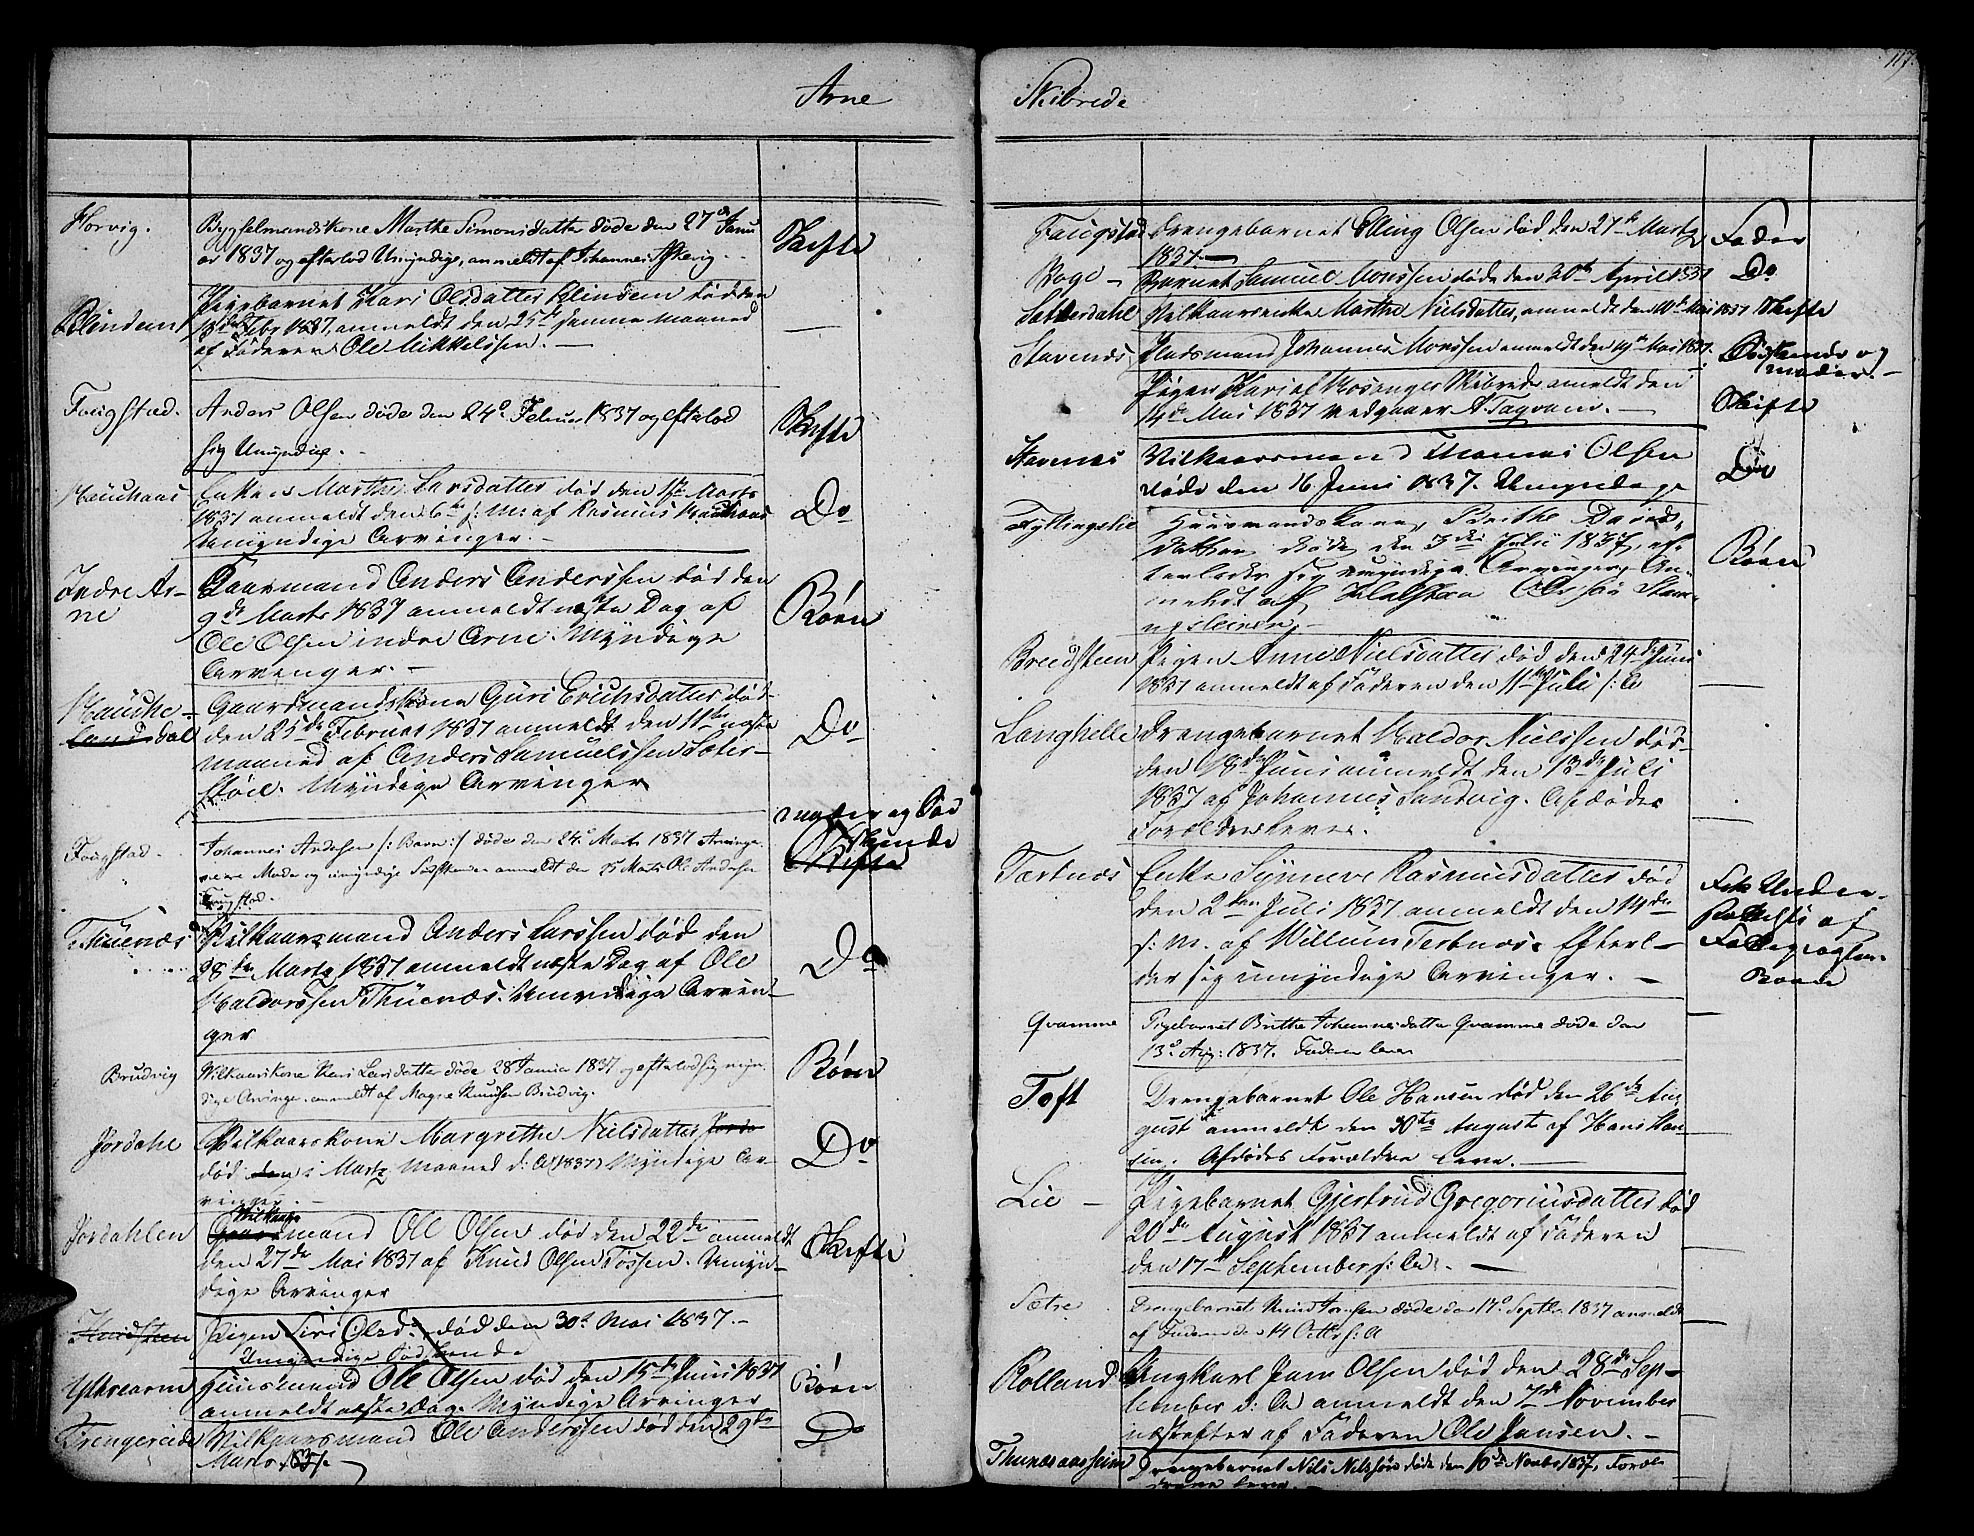 Arne
Horvig.
Bygselmandskone Marthe Simonsdatter døde den 27de Janu
ar 1837 og efterlod Umyndige, anmeldt af Johannes
Skifte
Blindem
Pigebarnet Kari Olsdatter Blindem død den
Febr 1837 anmeldt den 25de samme maaned
af Faderen Ole Mikkelssen. —
—
Faugstad.
Anders Olsen døde den 24de Februar 1837 og efterlod
sig Umyndige. -
Skifte
Hauchaas
Enken Marthe Larsdatter død den 1ste Marts
1837 anmeldt den 6te s: M: af Rasmus Hauchaas
Umyndige Arvinger. —
Do
Indre Ar-
ne
Gaarmand Anders Anderssen død den
9de Marts 1837 anmeldt næste Dag af
Ole Olsen indre Arne. Myndige
Arvinger. —
Børn
Hauche-
land dal
Gaardmandskone Guri Erichsdatter død
den 25de Februar 1837 anmeldt den 11te næste
maaned af Anders Samuelssen Sæter-
støel. Myndige Arvinger
Do
Faugstad.
Johannes Andersen /: Barn :/ døde den 24de Marts 1837 Arvinge
vere Moder og umyndige Sødskende anmeldt den 25 Marts Ole Andersen
Faugstad.
moder og Sød
skende
Skifte
Thuenæs
Vilkaarsmand Anders Larssen død den
28de Marts 1837 anmeldt næste Dag af Ole
Haldorssen Thuenæs. Umyndige Arvin-
ger
Do
Brudvig
Vilkaarskone Kari Larsdatter døde 28 Januar 1837 og efterlod sig myn-
dige Arvinge. anmeldt af Magne Knudsen Brudvig.
Børn
Jordahl
Vilkaarskone Margrethe Nielsdatter
død den i Marts maaned d: A: (1837) Myndige Ar-
vinger. —
Do
Jordahlen
Vilkaars
Gaardmand Ole Olsen død den 22de anmeldt
den 27de Mai 1837 af Knud Olsen Tossen. Umyn-
dige Arvinger
Skifte
Pigen Siri Olsd: død den 30te Mai 1837. -
Umyndige Sødskende
Ytrearne
Huusmand Ole Olsen død den 15de Juni 1837
anmeldt næste Dag. Myndige Arvinger
Børn
Trengereide
Vilkaarsmand Ole Anderssen død den 29de
Marts 1837. —
Do
Skibrede
117.
Faugstad
Drengebarnet Elling Olsen død den 27de Marts
1837. —
Fader
Boge —
Barnet Samuel Monssen døde den 20de April 1837
Do
Sætterdahl
Vilkaarsenke Marthe Nielsdatter, anmeldt den 10de Mai 1837
Skifte
Stavenæs
Pladsmand Johannes Monssen anmeldt den 19de Mai 1837.
Sødskende og
moder. —
Pigen Kari af Mosenger Skibrede ameldt den
14de Mai 1837 vedgaaer A. Tagvam. —
Skifte
Stavenæs
Vilkaarsmand Thomas Olsen
døde den 16 Juni 1837. Umyndige
Do
Fyllingslie
Huusmandskone Brithe Davids-
datter døde den 3die Julii 1837, ef-
terlader sig myndige Arvinger. An-
meldt af
Børn
Breedsteen
Pigen Anne Nielsdatter død den 24de Juni
1837 anmeldt af Faderen den 11te Juli s: A
—
Langhelle
Drengebarnet Haldor Nielssen død
den 18de Juni anmeldt den 13de Juli
1837 af Johannes Sandvig. Afdødes
Forældre lever.
—
Tertnæs
Enke Synneve Rasmusdatter død
den 2den Juli 1837 anmeldt den 14de
s: M. af Willum Tertnæs. Efterl-
der sig umyndige Arvinger. —
Qvamme
Pigebarnet Brithe Johannesdatter Qvamme døde den
13de Aug: 1837. Faderen lever
Toft
Drengebarnet Ole Hansen død den 26de Au-
gust anmeldt den 30te Augusti af Hans Han-
sen. Afdødes Forældre leve. —
Lie —
Pigebarnet Gjertrud Gregoriusdatter død
20de August 1837 anmeldt af Faderen
den 17de September s: A: —
Sætre
Drengebarnet Knud døde den 17de Septbr 1837 anmeldt
af Faderen den 14 Octbr s: A
Rolland
Ungkarl Jens Olsen død den 28de Sep-
tember d: A anmeldt den 7de November
næstefter af Faderen Ole Jansen. —
Drengebarnet Nils Nilssøn døde den 10de Novbr 1837, Foræl-
drene lever.